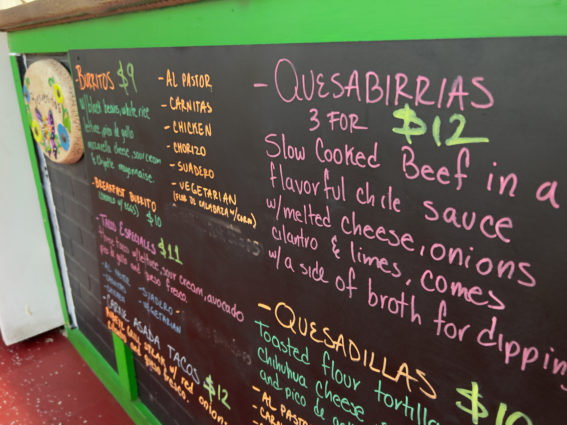 -BURRITOS $9
w/black beans, white rice
lettuce, pico de gallo
mozzarella cheese, sour cream
& chipotle mayonnaise.
-BREAKFAST BURRITO
(comes w/ eggs) $10
-TACOS ESPECIALES $11
three tacos w/lettuce, sour cream, avocado
pico de gallo and queso fresco
-AL PASTOR
-CHICKEN
-SUADERO
-VEGETARIAN
-CARNE ASADA TACOS $12
STEAK w/ red onions
queso fresco.
-AL PASTOR
-CARNITAS
-CHICKEN
-CHORIZO
-SUADERO
-VEGETARIAN
(FLOR DE CALABAZA w/CORN)
-QUESABIRRIAS
3 FOR $12
Slow Cooked Beef in a
flavorful chile sauce
w/melted cheese, onions
cilantro & limes, comes
w/a side of broth for dipping
-QUESADILLAS $10
Toasted flour tortilla
chihuahua cheese
and pico de
-AL PASTO